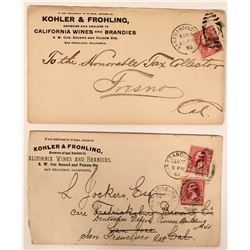 KOHLER & FROHLING,
GROWERS AND DEALERS IN
CALIFORNIA WINES AND BRANDIES
S. W. Cor. Second and Folsom Sts.
SAN FRANCISCO, CALIFORNIA.
To the Honorable Tax Collector
Fresno
Cal.
If not delivered in 10 days, return to
KOHLER & FROHLING,
Growers of and Dealers in
CALIFORNIA WINES AND BRANDIES,
S. W. Cor. Second and Folsom Sts.
SAN FRANCISCO, CALIFORNIA.
L. Jockers, Esq.
care Fredericksburg Brewing Co.
San Jose
San Francisco Cal.